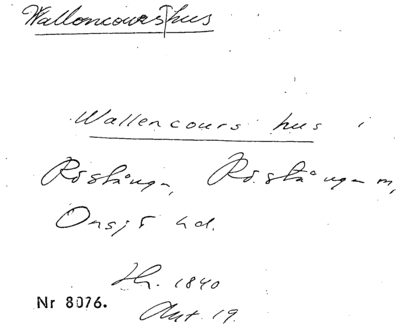 Walloncourshus
Wallencours hus i
Röstånga, Röstånga m,
Onsjö hd.
Th. 1840
Nr 8076.
Ant. 19.